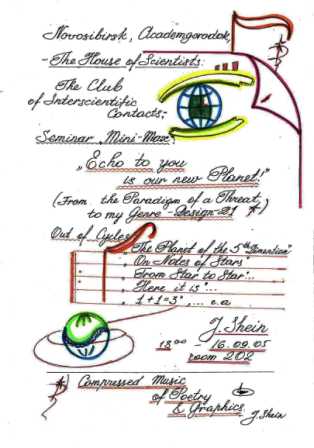 Novosibirsk, Academgorodok,
- The House of Scientists:
The Club
of Interscientific
Contacts;
Seminar „Mini-Max":
„Echo to you
is our new Planet!"
(From the Paradigm of a Threat,
to my Genre - Design - *)
Out of Cycles
„The Planet of the 5th Dimention"
„On Notes of Stars"
„From Star to Star"...
„Here it is"...
„1+1=3", ... e.a
J. Shein
18.00 - 16.09.05
room 202
*) Compressed Music
of Poetry
& Graphics
J. Shein